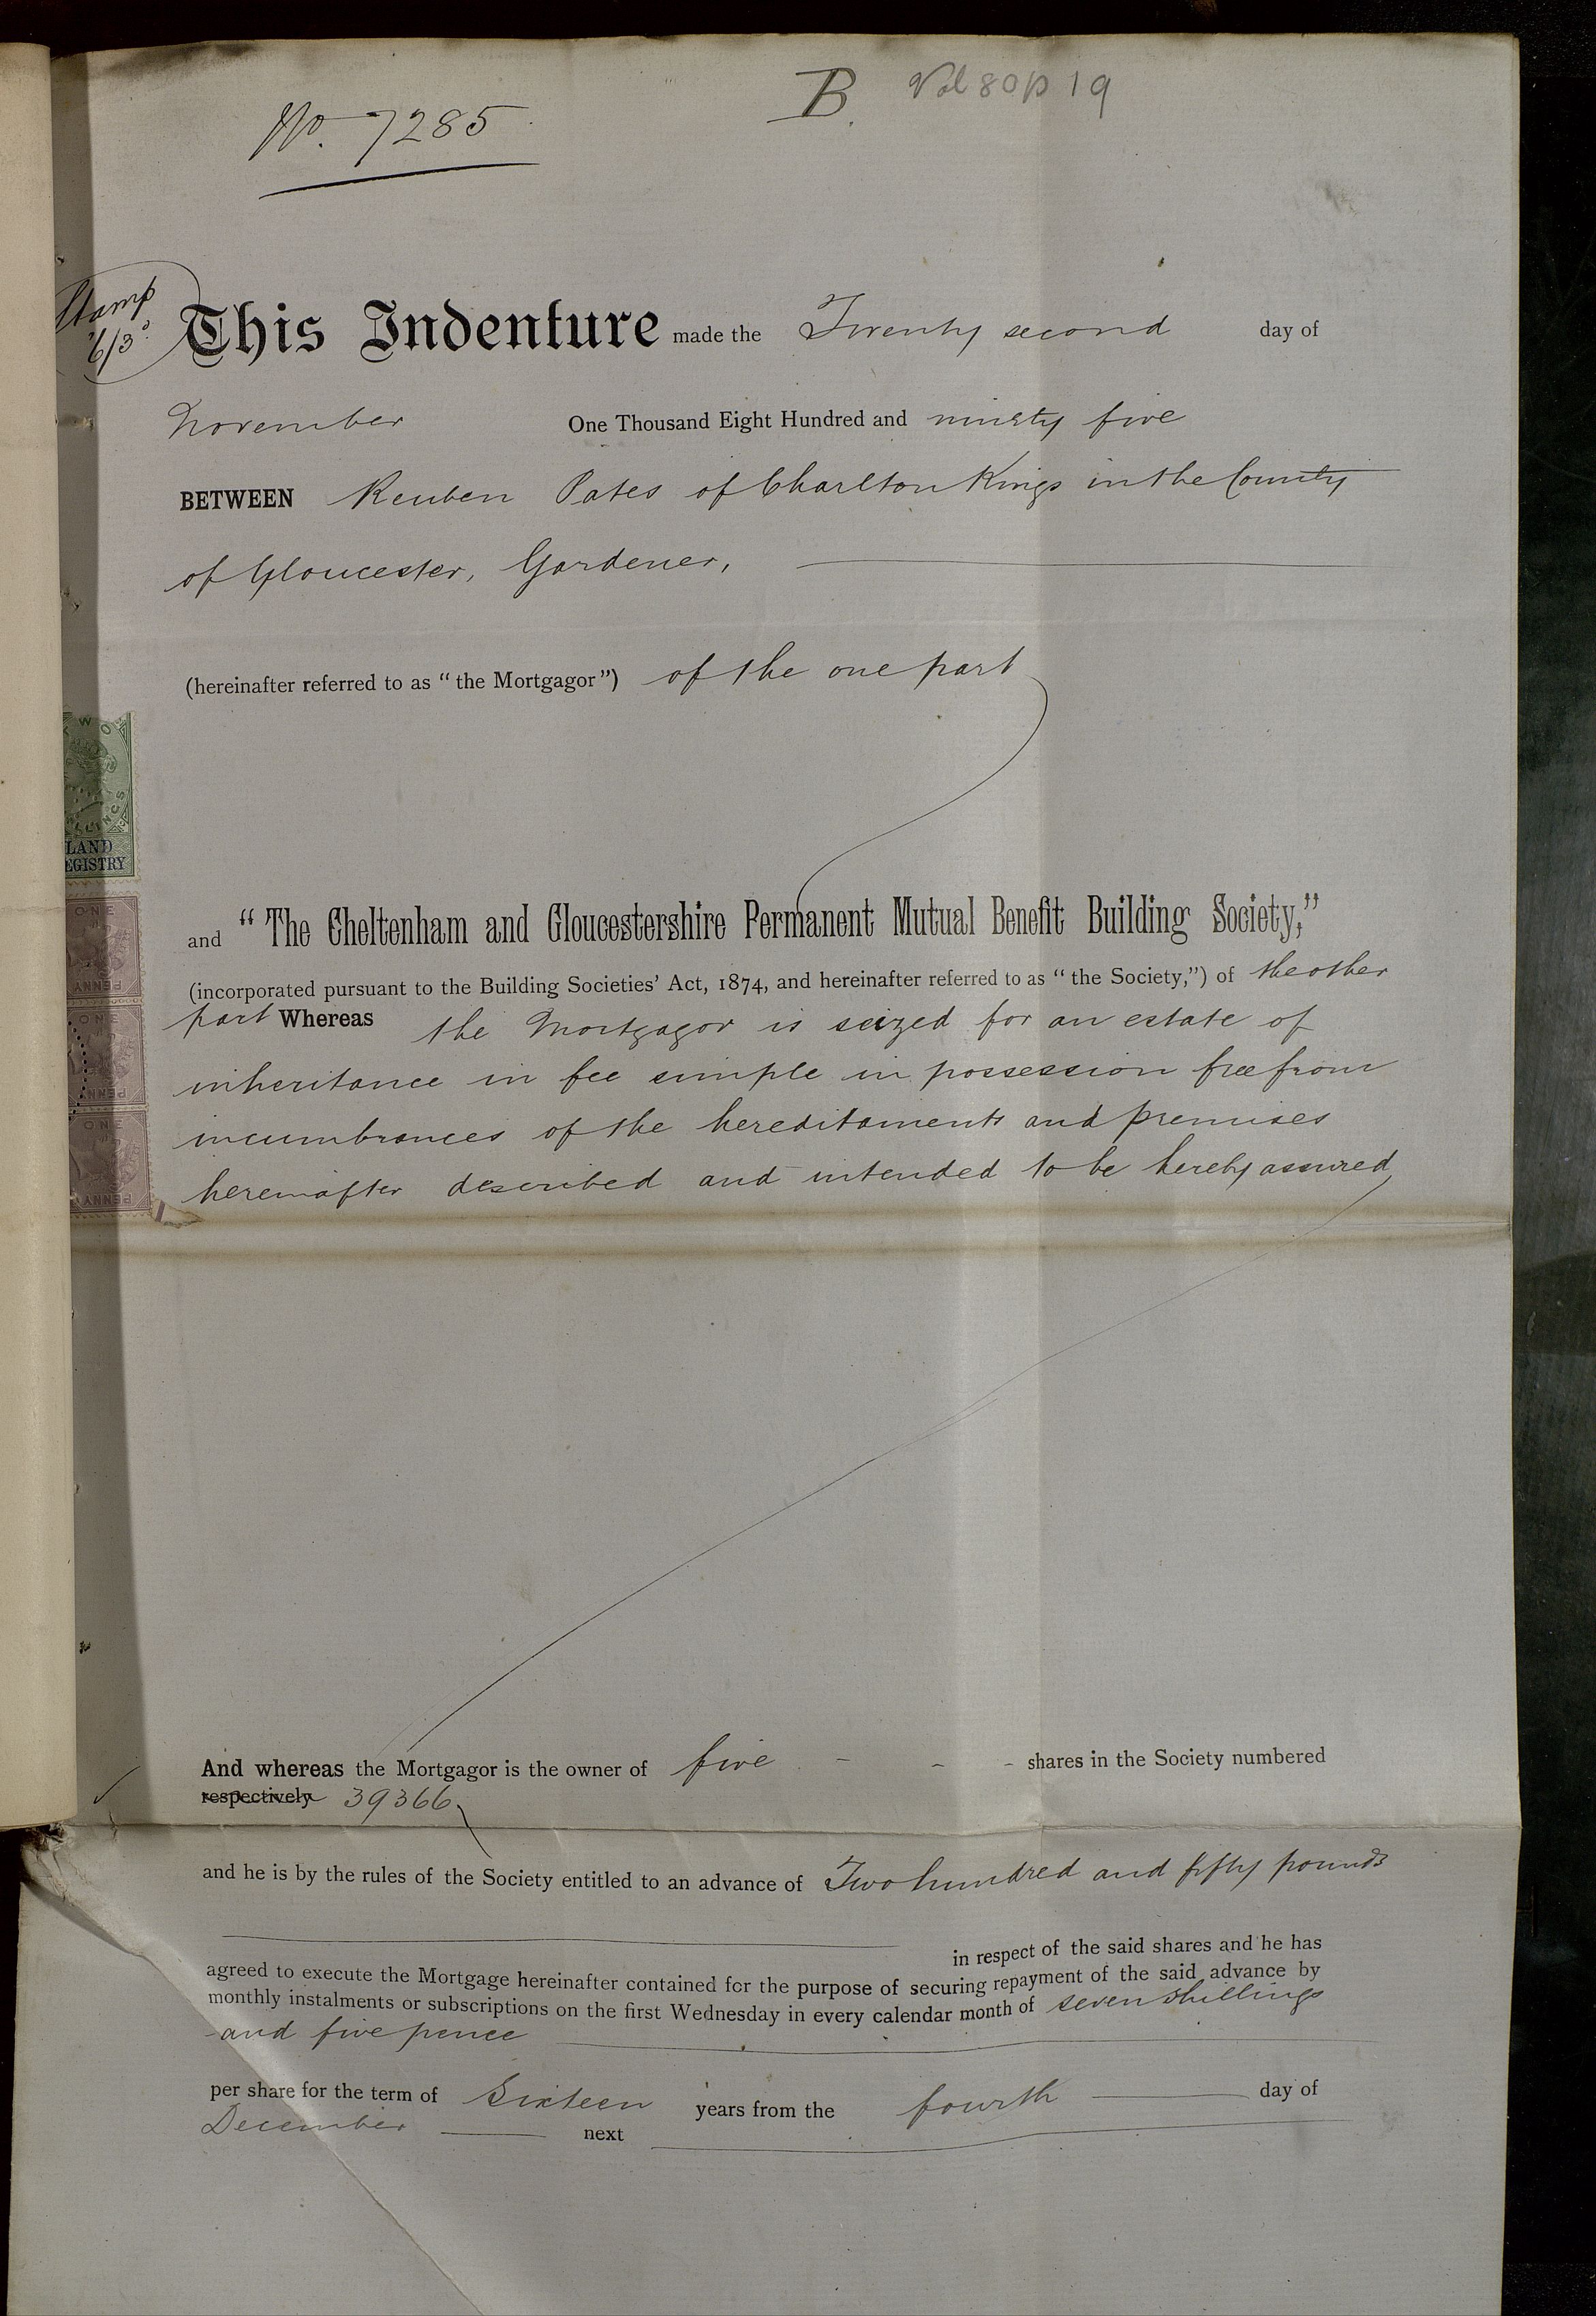 B. Vol 80 p 19
No. 7285
Stamp
6/3
This Indenture made the Twenty second day of
November One Thousand Eight Hundred and ninety five
BETWEEN Reuben Pates of Charlton Kings in the County
of Gloucester, Gardener,
(hereinafter referred to as "the Mortgagor") of the one part
LAND
EGISTRY
ONE
PENNY
ONE
PENNY
ONE
PENNY
and "The Cheltenham and Gloucestershire Permanent Mutual Benefit Building Society,"
(incorporated pursuant to the Building Societies' Act, 1874, and hereinafter referred to as "the Society,") of the other
part Whereas the Mortgagor is seized for an estate of
inheritance in fee simple in possession free from
incumbrances of the hereditaments and premises
hereinafter described and intended to be hereby assured,
And whereas the Mortgagor is the owner of five - - - shares in the Society numbered
respectively 39366
and he is by the rules of the Society entitled to an advance of Two hundred and fifty pounds
in respect of the said shares and he has
agreed to execute the Mortgage hereinafter contained for the purpose of securing repayment of the said advance by
monthly instalments or subscriptions on the first Wednesday in every calendar month of seven shillings
and five pence
per share for the term of Sixteen years from the fourth day of
December next